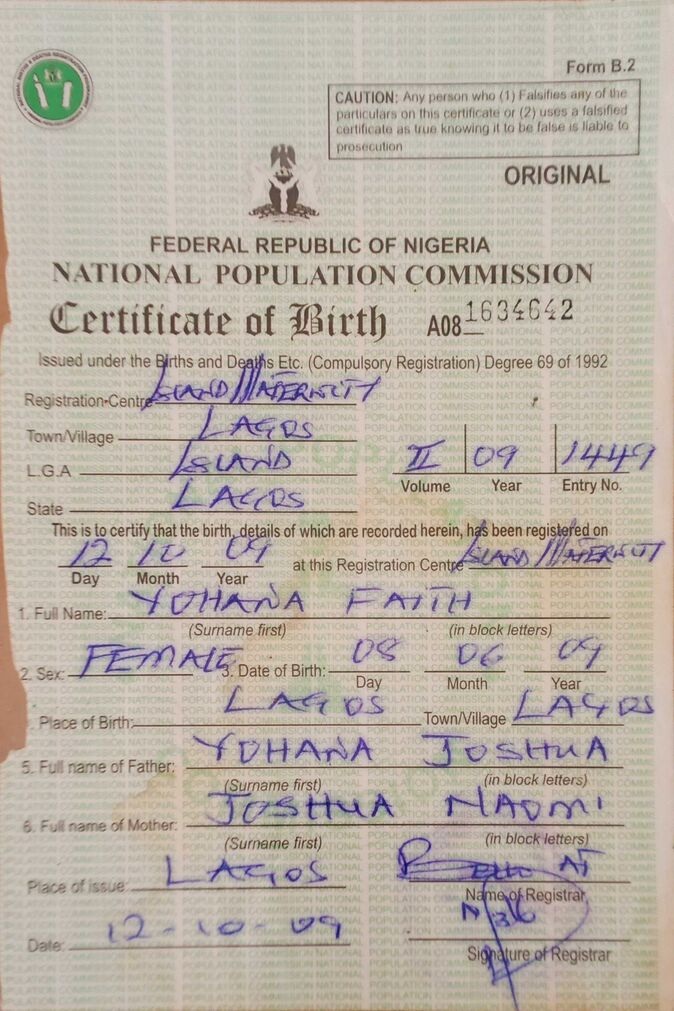 Form B.2
CAUTION: Any person who (1) Falsifies any of the
particulars on this certificate or (2) uses a falsified
certificate as true knowing it to be false is liable to
prosecution
ORIGINAL
FEDERAL REPUBLIC OF NIGERIA
NATIONAL POPULATION COMMISSION
Certificate of Birth A08 1634642
Issued under the Births and Deaths Etc. (Compulsory Registration) Degree 69 of 1992
Registration-Centre ISLAND MATERNITY
Town/Village LAGOS
L.G.A ISLAND
II 09 1449
Volume Year Entry No.
State LAGOS
This is to certify that the birth, details of which are recorded herein, has been registered on
12 10 09 at this Registration Centre ISLAND MATERNITY
Day Month Year
1. Full Name: YOHANA FAITH
(Surname first) (in block letters)
2. Sex: FEMALE 3. Date of Birth: 08 06 09
Day Month Year
. Place of Birth: LAGOS Town/Village LAGOS
5. Full name of Father: YOHANA JOSHUA
(Surname first) (in block letters)
6. Full name of Mother: JOSHUA NAOMI
(Surname first) (in block letters)
Place of issue: LAGOS
Name of Registrar
Date: 12-10-09
Signature of Registrar